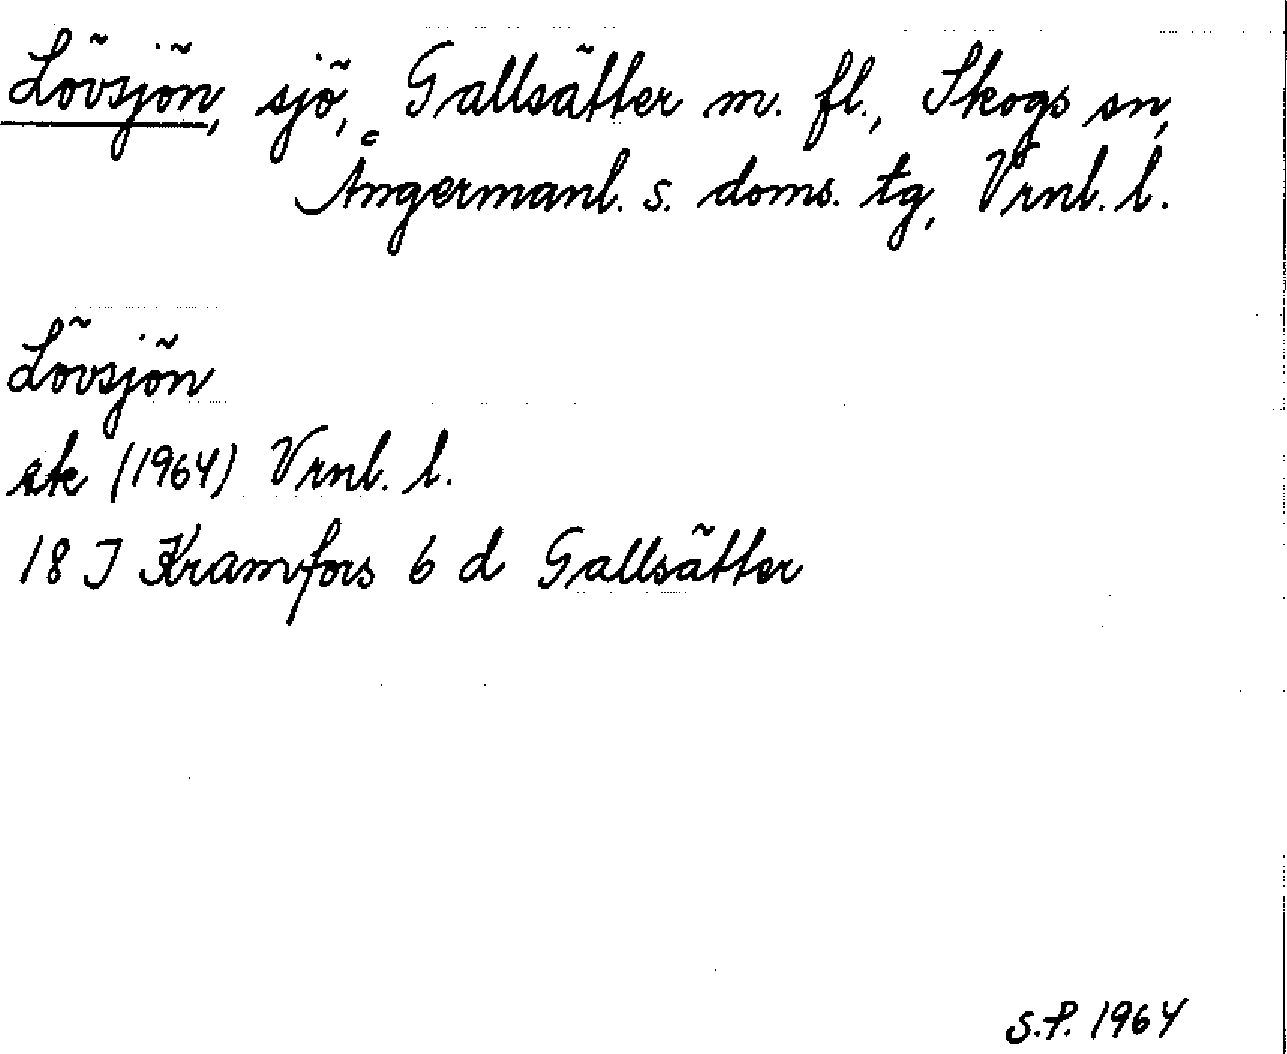 Lövsjön, sjö, Gallsätter m. fl., Skogs sn,
Ångermanl. s. doms. tg, Vrnl. l.
Lövsjön
ek (1964) Vrnl. l.
18 I Kramfors 6 d Gallsätter
S.P. 1964